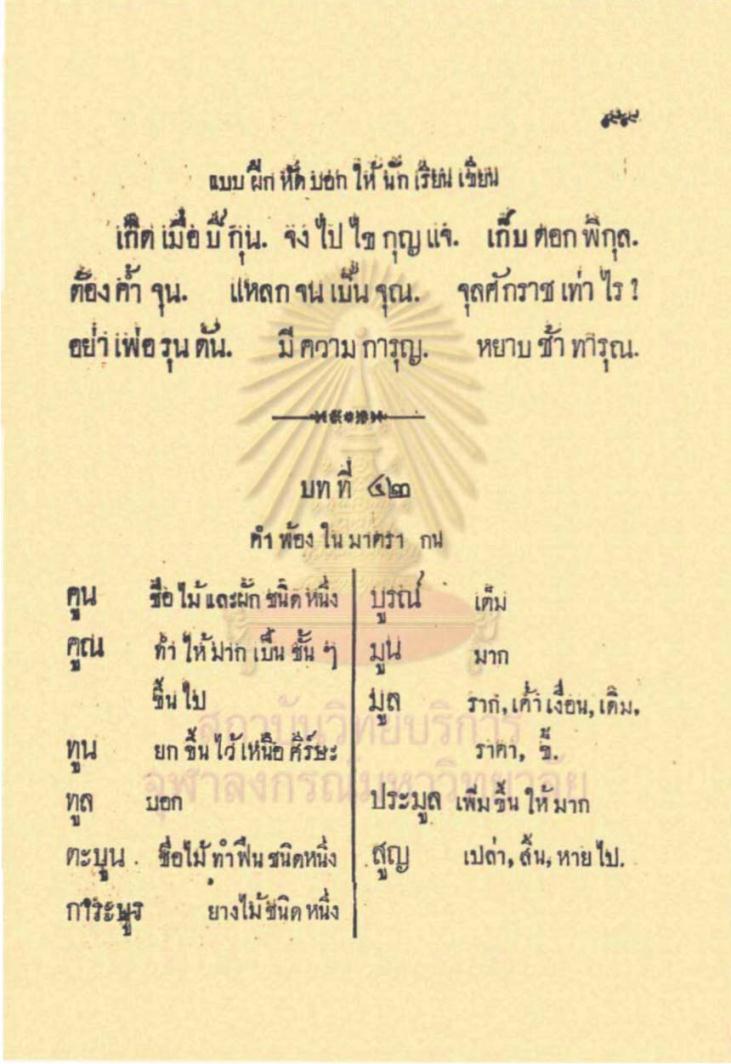 แบบ ฝึก หัด บอก ให้ นัก เรียน เขียน
เกิด เมื่อ ปี กุน. จง ไป ไข กุญ แจ. เก็บ ดอก พิกุล.
ต้อง ค้ำ จุน. แหลก จน เป็น จุณ. จุลศักราช เท่า ไร ?
อย่า เพ่อ รุน ดัน. มี ความ การุญ. หยาบ ช้า ทารุณ.
บท ที่ ๔๒
คำ พ้อง ใน มาตรา กน
คูน ชื่อ ไม้ และผัก ชนิด หนึ่ง
คูณ ทำ ให้ มาก เป็น ชั้น ๆ
ขึ้น ไป
ทูน ยก ขึ้น ไว้ เหนือ ศีร์ษะ
ทูล บอก
ตะบูน ชื่อไม้ ทำ ฟืน ชนิดหนึ่ง
การะบูร ยางไม้ ชนิด หนึ่ง
บูรณ์ เต็ม
มูน มาก
มูล ราก, เค้า เงื่อน, เดิม,
ราคา, ขี้.
ประมูล เพิ่ม ขึ้น ให้ มาก
สูญ เปล่า, สิ้น, หาย ไป.
สถาบันวิทยบริการ
จุฬาลงกรณ์มหาวิทยาลัย